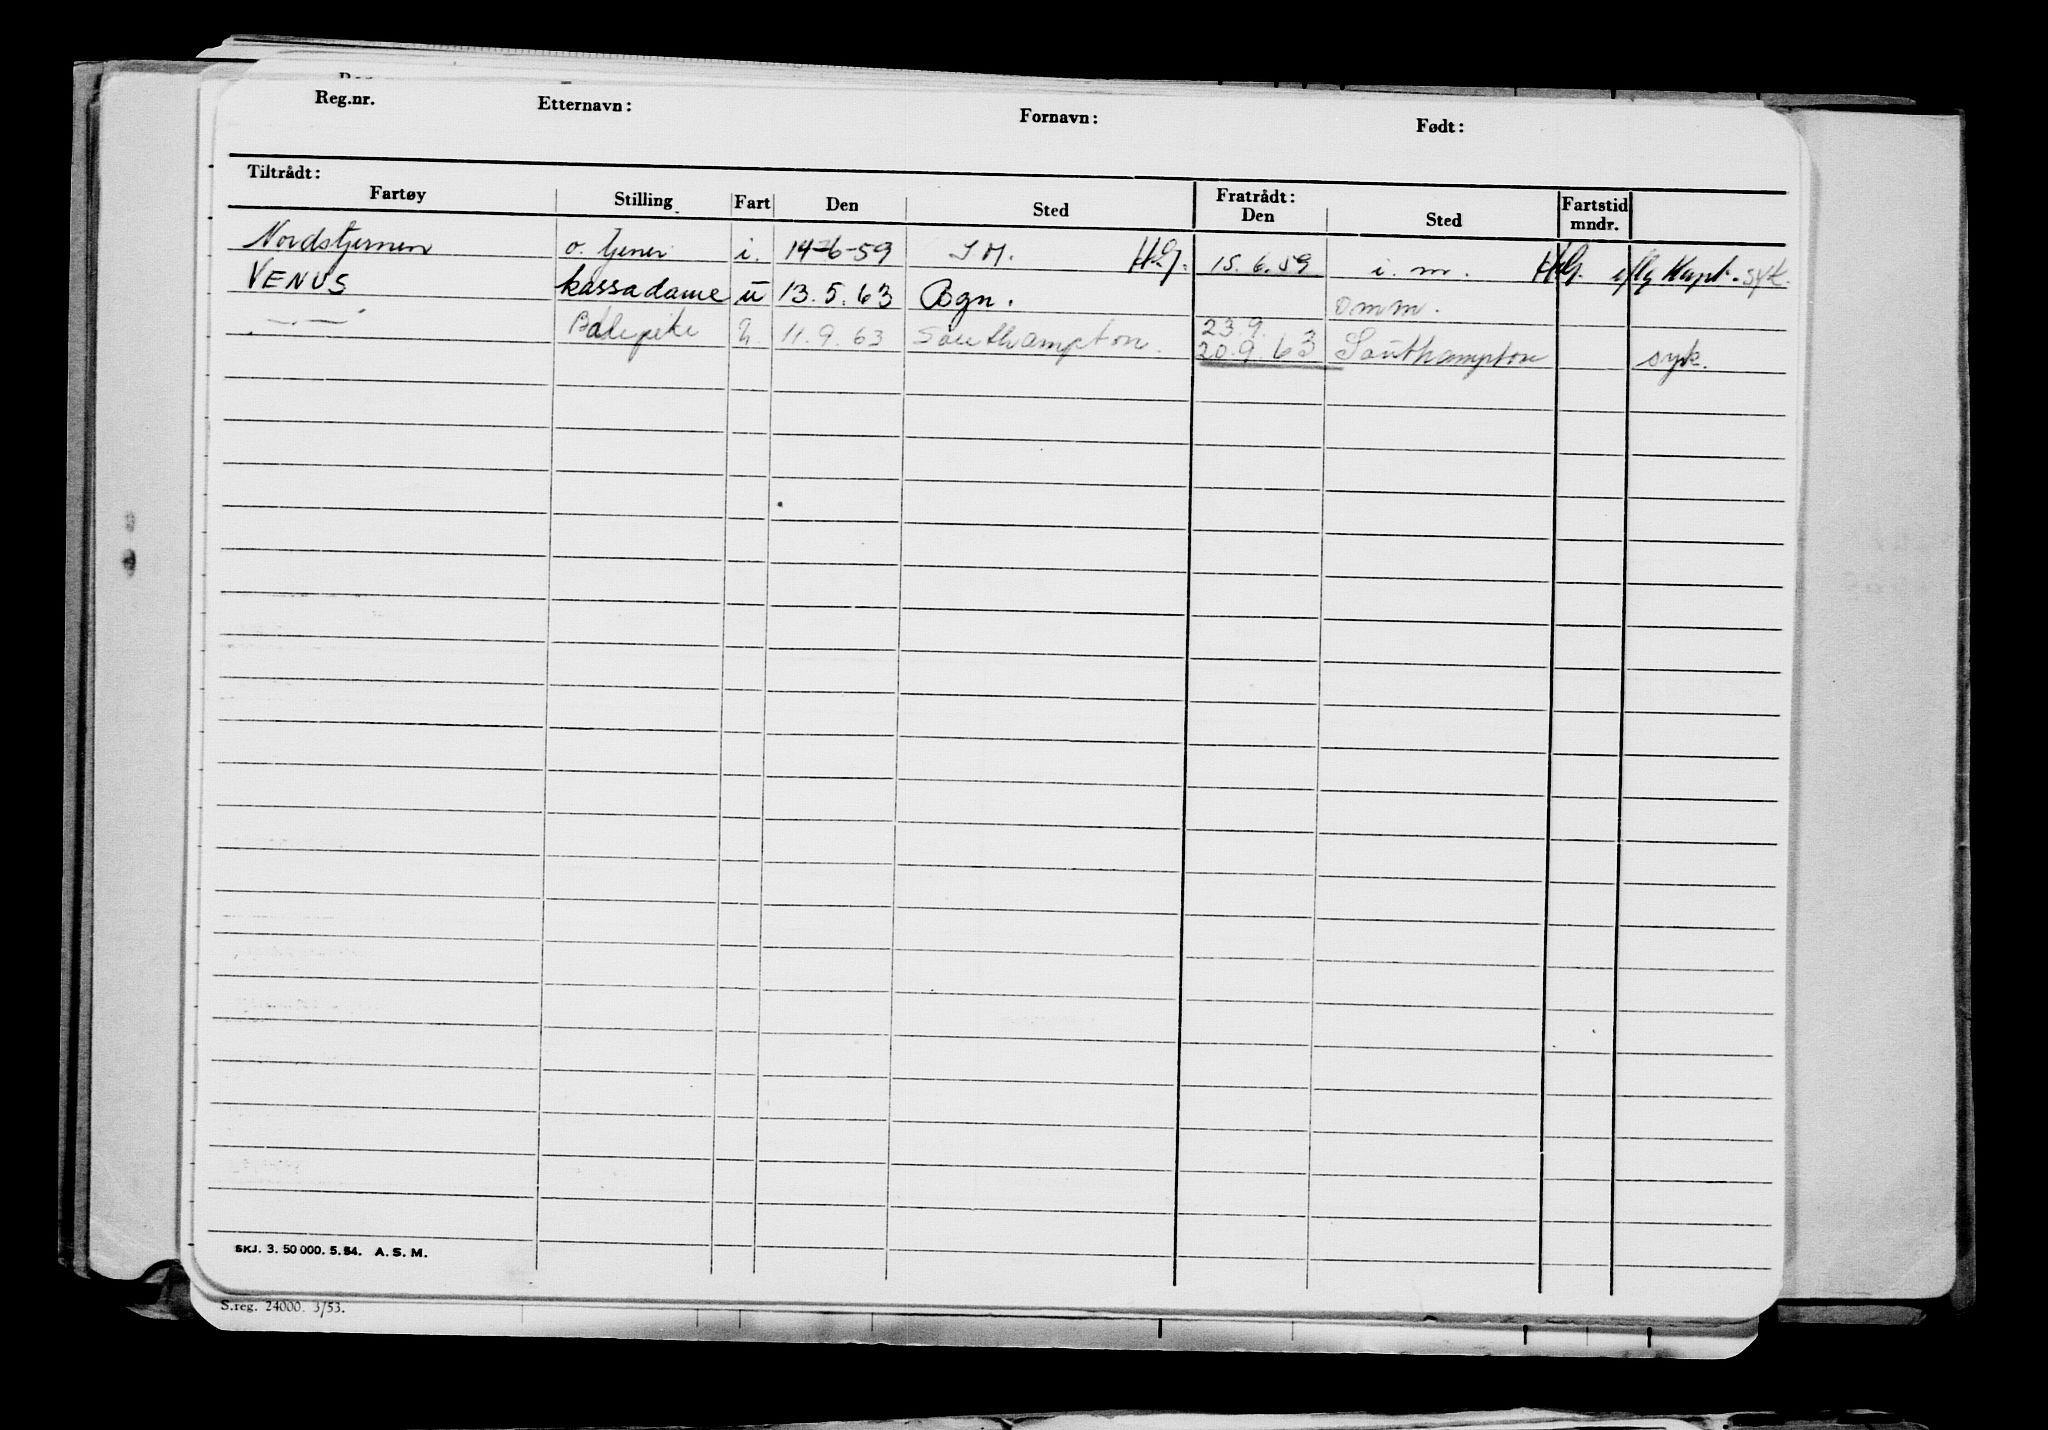 Reg.nr. Etternavn: Fornavn: Født:
Tiltrådt: Fratrådt:
Fartøy Stilling Fart Den Sted Den Sted Fartstid mndr.
Nordstjernen o. tjener i. 14-6-59 I M. H.G. 15.6.59 i. m. H.G. iflg Kapt. syk.
VENUS kassadame u 13.5.63 Bgn. omm.
—"— u. 11.9.63 Southampton. 23.9. 20.9.63 Southampton syk.
SKJ. 3. 50 000. 5. 54. A. S. M.
S.reg. 24000. 3/53.